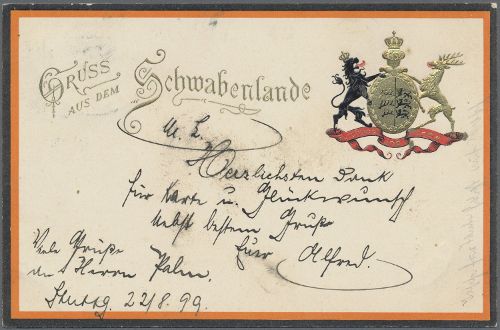 GRUSS
AUS DEM
Schwabenlande
M. L.
Herzlichsten Dank
für Karte u. Glückwunsch
Nebst bestem Gruße
Euer Alfred.
Viele Grüße
an Herrn Palm.
Stuttg. 22/8. 99.